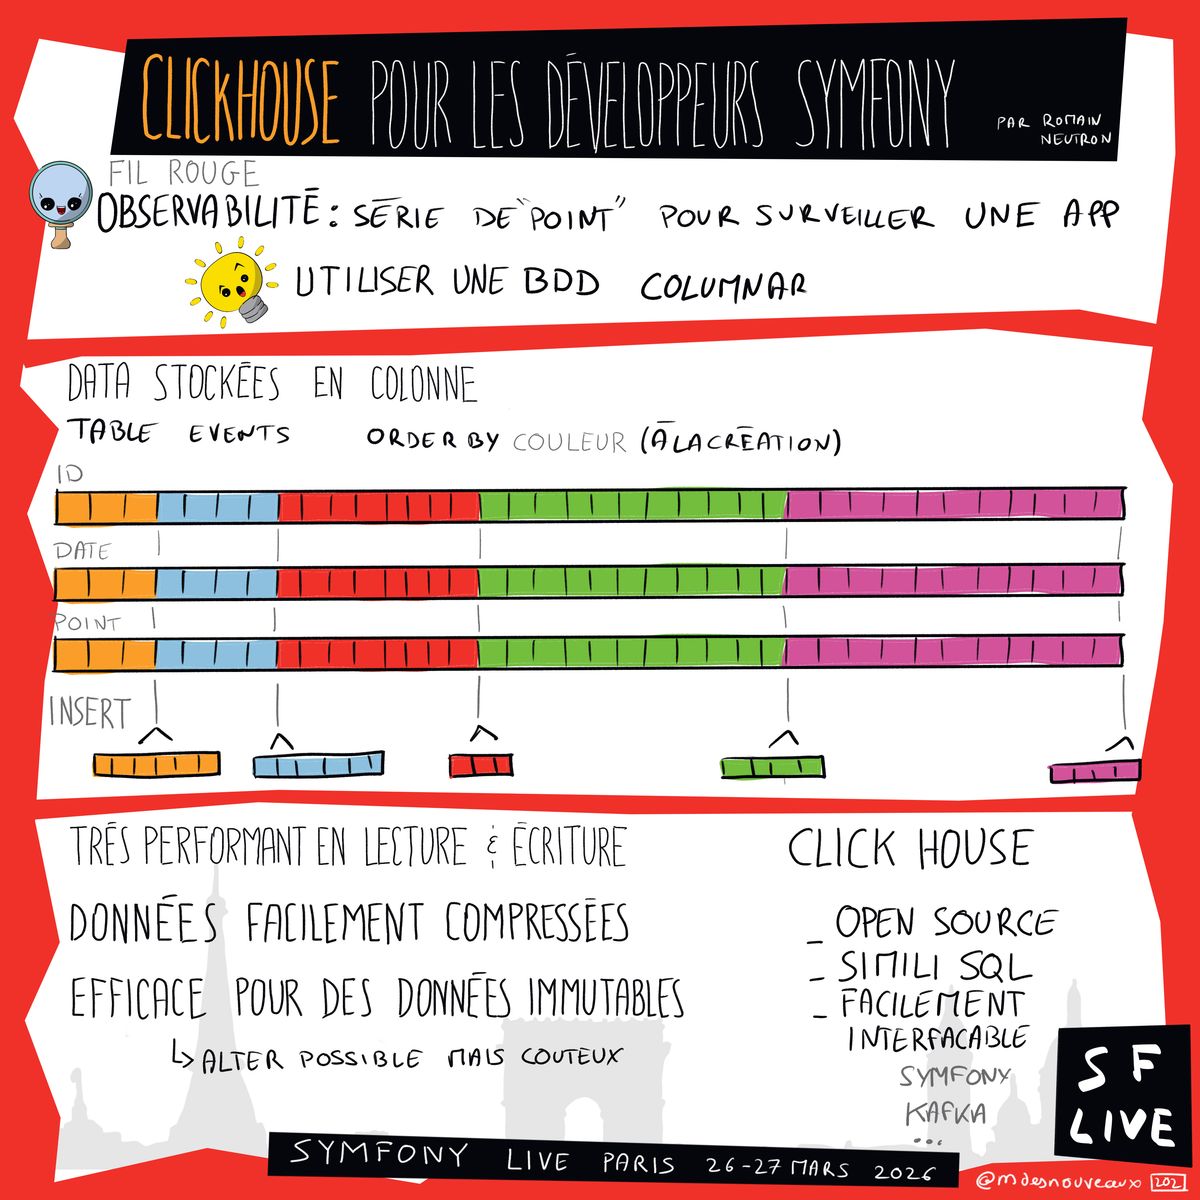 CLICKHOUSE POUR LES DÉVELOPPEURS SYMFONY
PAR ROMAIN
NEUTRON
FIL ROUGE
OBSERVABILITÉ : SÉRIE DE "POINT" POUR SURVEILLER UNE APP
UTILISER UNE BDD COLUMNAR
DATA STOCKÉES EN COLONNE
TABLE EVENTS ORDER BY COULEUR (À LA CRÉATION)
ID
DATE
POINT
INSERT
TRÉS PERFORMANT EN LECTURE & ÉCRITURE
DONNÉES FACILEMENT COMPRESSÉES
EFFICACE POUR DES DONNÉES IMMUTABLES
↳ ALTER POSSIBLE MAIS COUTEUX
CLICK HOUSE
- OPEN SOURCE
- SIMILI SQL
- FACILEMENT
INTERFACABLE
SYMFONY
KAFKA
...
SF
LIVE
SYMFONY LIVE PARIS 26-27 MARS 2026
@mdesnouveaux 202